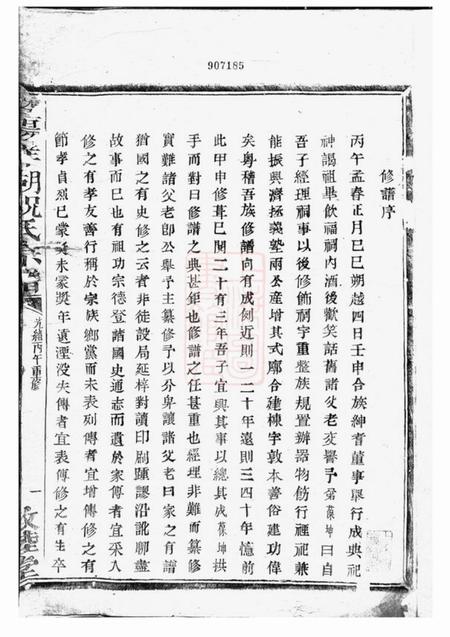 907185
修譜序
丙午孟春正月己巳朔越四日壬申合族紳耆董事舉行成典祀
神謁祖畢飲福祠内酒後歡笑話舊諸父老交譽予弟葆坤曰自
吾子經理祠事以後修飾祠宇重整族規置辦器物彷行禋祀兼
能振興濟拯義塾兩公產增其式廓合建棟宇敦本善俗建功偉
矣粤稽吾族修譜向有成例近則一二十年遠則三四十年憶前
此甲申修葺已閱二十有三年吾子宜興其事以總其成葆坤拱
手而對曰修譜之典甚鉅也修譜之任甚重也經理非難而纂修
實難諸父老即公舉予主纂修予以分卑讓諸父老曰家之有譜
猶國之有史修之云者非徒設局延梓對讀印刷踵謬沿訛聊盡
故事而已也有祖功宗德登諸國史通志而遺於家傳者宜采入
修之有孝友善行稱於宗族鄉黨而未表列傳者宜增傳修之有
節孝貞烈已蒙奬未蒙奬年遠湮没失傳者宜表傳修之有生卒
氏宗譜
光緒丙午重修
一
敦睦堂